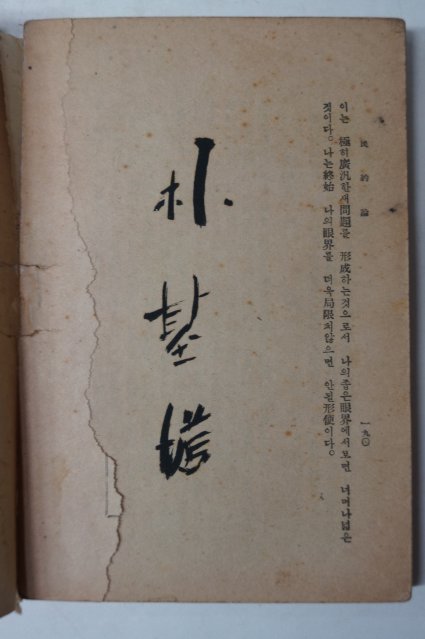 民約論
一九〇
이는 極히廣汎한새問題를 形成하는것으로서 나의좁은眼界에서보면 너머나넓은
것이다。나는終始 나의眼界를 더욱局限치않으면 안될形便이다。
朴